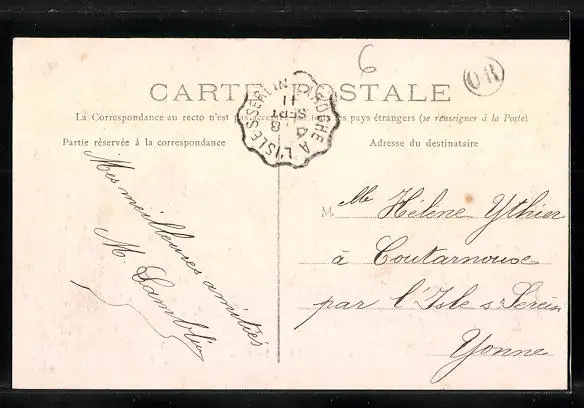 6
OR
CARTE POSTALE
La Correspondance au recto n'est pas acceptée pays étrangers (se renseigner à la Poste)
Partie réservée à la correspondance
Adresse du destinataire
LAROCHE A L'ISLE S SEREIN
11
SEPT
8
Mes meilleures amitiés
M.
M. Mlle Hélène Ythier
à Coutarnouse
par l'Isle s/ Serein
Yonne